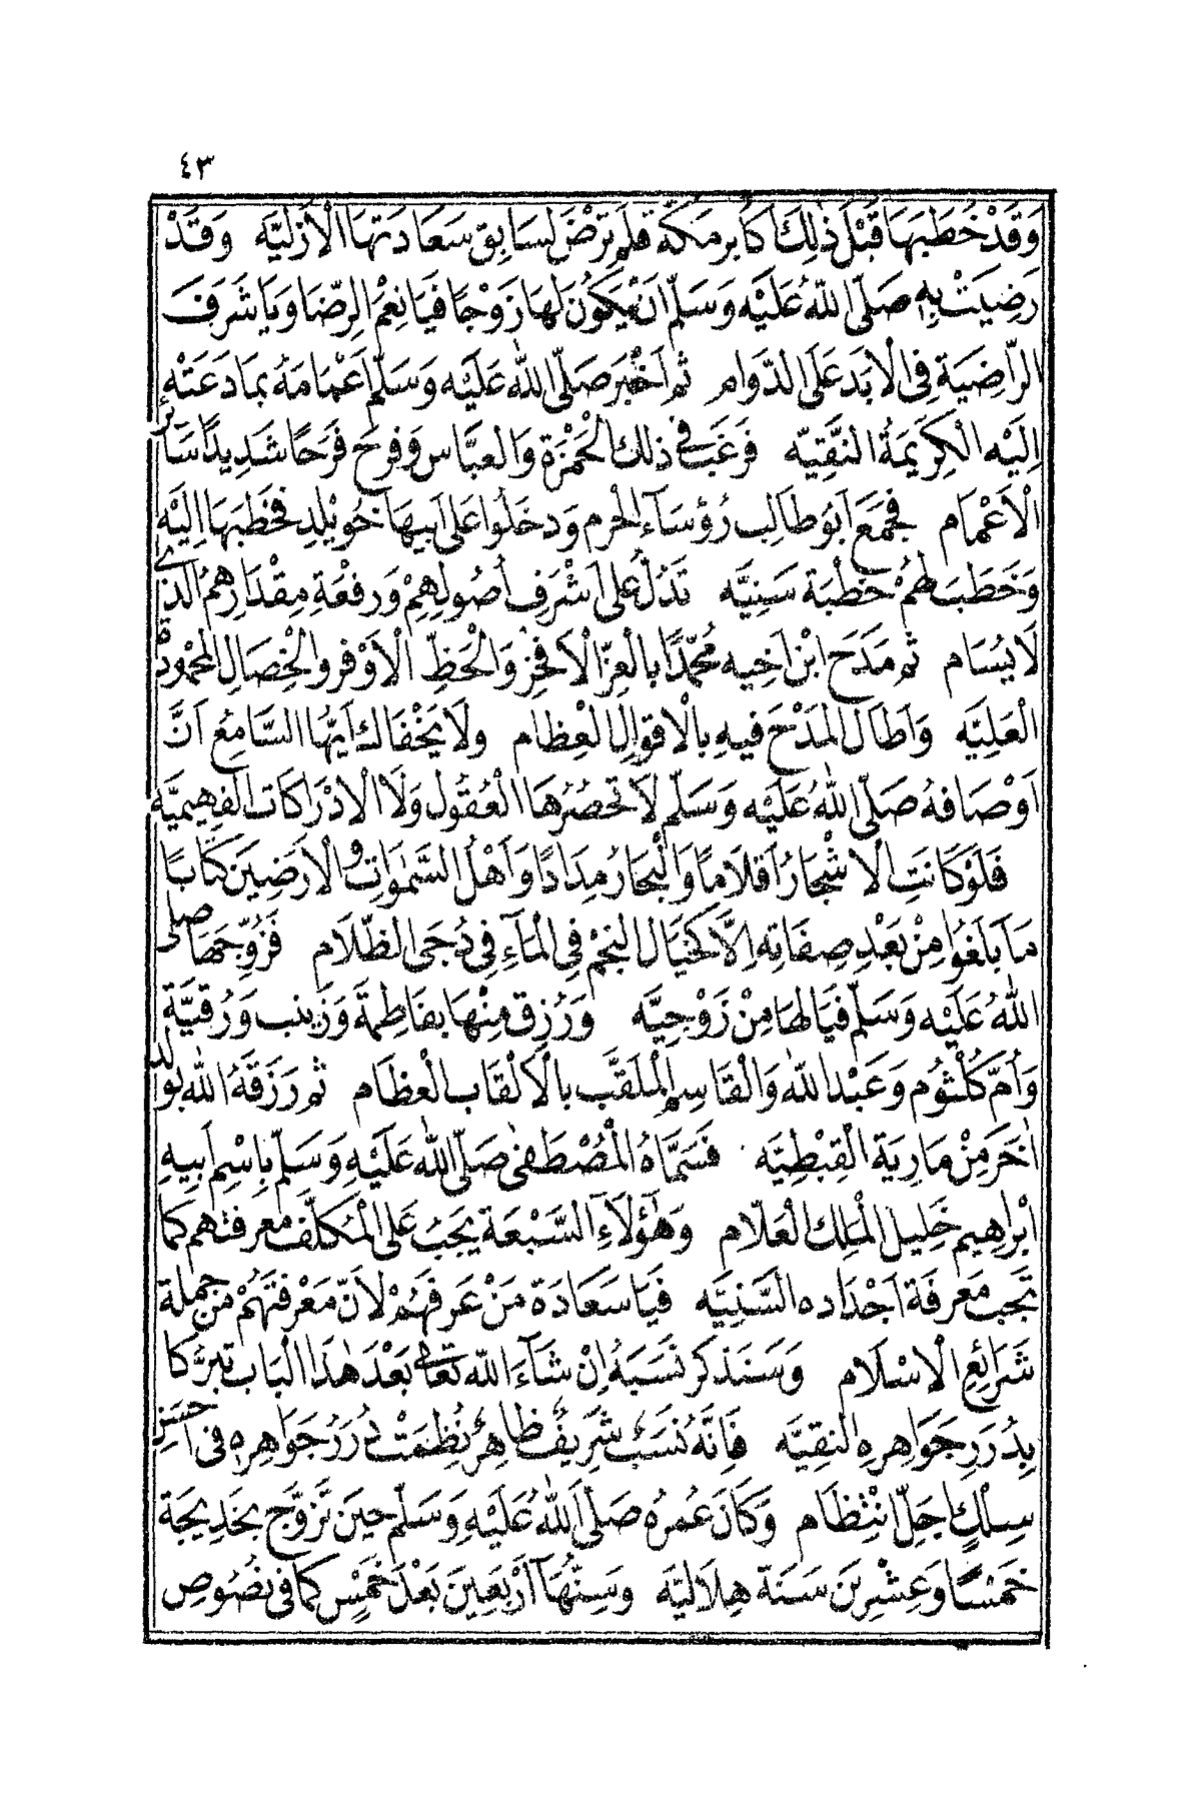 ٤٣
وَقَدْ خَطَبَهَا قَبْلَ ذٰلِكَ كَابِرُ مَكَّةَ فَلَمْ تَرْضَ لِسَابِقِ سَعَادَتِهَا الْأَزَلِيَّه وَقَدْ
رَضِيَتْ بِهِ صَلَّى اللّٰهُ عَلَيْهِ وَسَلَّمَ اَنْ يَكُونَ لَهَا زَوْجًا فَيَا نِعْمَ الرِّضَا وَيَا شَرَفَ
الرَّاضِيَةِ فِى الْاَبَدِ عَلَى الدَّوَام ثُمَّ اَخْبَرَ صَلَّى اللّٰهُ عَلَيْهِ وَسَلَّمَ اَعْمَامَهُ بِمَا دَعَتْهُ
اِلَيْهِ الْكَرِيمَةُ النَّقِيَّه فَرَغَبَ فِى ذٰلِكَ الْحَمْزَةُ وَالْعَبَّاس وَفَرِحَ فَرَحًا شَدِيدًا سَائِرُ
الْاَعْمَام فَجَمَعَ اَبُو طَالِب رُؤَسَآءَ الْحَرَم وَدَخَلُوا عَلَى اَبِيهَا خُوَيْلِدِ فَخَطَبَهَا اِلَيْهِ
وَخَطَبَ لَهُمْ خُطْبَةً سَنِيَّه تَدُلُّ عَلَى اَشْرَفِ اُصُولِهِمْ وَرِفْعَةِ مِقْدَارِهِمُ الَّذِى
لَا يُسَام ثُمَّ مَدَحَ ابْنَ اَخِيهِ مُحَمَّدًا بِالْعِزِّ الْاَفْخَرِ وَالْحَظِّ الْاَوْفَرِ وَالْخِصَالِ الْمَحْمُودَةِ
الْعَلِيَّه وَاَطَالَ الْمَدْحَ فِيهِ بِالْاَقْوَالِ الْعِظَام وَلَا يَخْفَاكَ اَيُّهَا السَّامِعُ اَنَّ
اَوْصَافَهُ صَلَّى اللّٰهُ عَلَيْهِ وَسَلَّمَ لَا تَحْصُرُهَا الْعُقُول وَلَا الْاِدْرَاكَات الْفَهِيمِيَّه
فَلَوْ كَانَتِ الْاَشْجَارُ اَقْلَامًا وَالْبِحَارُ مِدَادًا وَاَهْلُ السَّمٰوَاتِ وَالْاَرَضِينَ كِتَابًا
مَا بَلَغُوا مِنْ بَعْدِ صِفَاتِهِ اِلَّا كَخَيَالِ النَّجْمِ فِى الْمَآءِ فِى دُجَى الظَّلَام فَزُوِّجَهَا صَلَّى
اللّٰهُ عَلَيْهِ وَسَلَّمَ فَيَا لَهَا مِنْ زَوْجِيَّه وَرُزِقَ مِنْهَا بِفَاطِمَةَ وَزَيْنَب وَرُقَيَّةَ
وَاُمِّ كُلْثُوم وَعَبْدِ اللّٰهِ وَالْقَاسِمِ الْمُلَقَّبِ بِالْاَلْقَابِ الْعِظَام ثُمَّ رَزَقَهُ اللّٰه بِوَلَدٍ
اٰخَرَ مِنْ مَارِيَةَ الْقِبْطِيَّه فَسَمَّاهُ الْمُصْطَفٰى صَلَّى اللّٰهُ عَلَيْهِ وَسَلَّمَ بِاِسْمِ اَبِيهِ
اِبْرٰهِيمَ خَلِيلِ الْمَلِكِ الْعَلَّام وَهٰؤُلَآءِ السَّبْعَةُ يَجِبُ عَلَى الْمُكَلَّفِ مَعْرِفَتُهُم كَمَا
تَجِبُ مَعْرِفَةُ اَجْدَادِهِ السَّنِيَّه فَيَا سَعَادَةَ مَنْ عَرَفَهُمْ لِاَنَّ مَعْرِفَتَهُمْ مِنْ جُمْلَةِ
شَرَائِعِ الْاِسْلَام وَسَنَذْكُرُ نَسَبَهُ اِنْ شَآءَ اللّٰه تَعَالٰى بَعْدَ هٰذَا الْبَابِ تَبَرُّكًا
بِدُرَرِ جَوَاهِرِهِ النَّقِيَّه فَاِنَّهُ نَسَبٌ شَرِيفٌ ظَاهِرٌ نُظِمَتْ دُرَرُ جَوَاهِرِهِ فِى اَحْسَنِ
سِلْكٍ اَجَلِّ انْتِظَام وَكَانَ عُمْرُهُ صَلَّى اللّٰهُ عَلَيْهِ وَسَلَّمَ حِينَ تَزَوَّجَ بِخَدِيجَةَ
خَمْسًا وَعِشْرِينَ سَنَةً هِلَالِيَّه وَسِنُّهَا اَرْبَعِينَ بَعْدَ خَمْسٍ كَمَا فِى نُصُوصِ